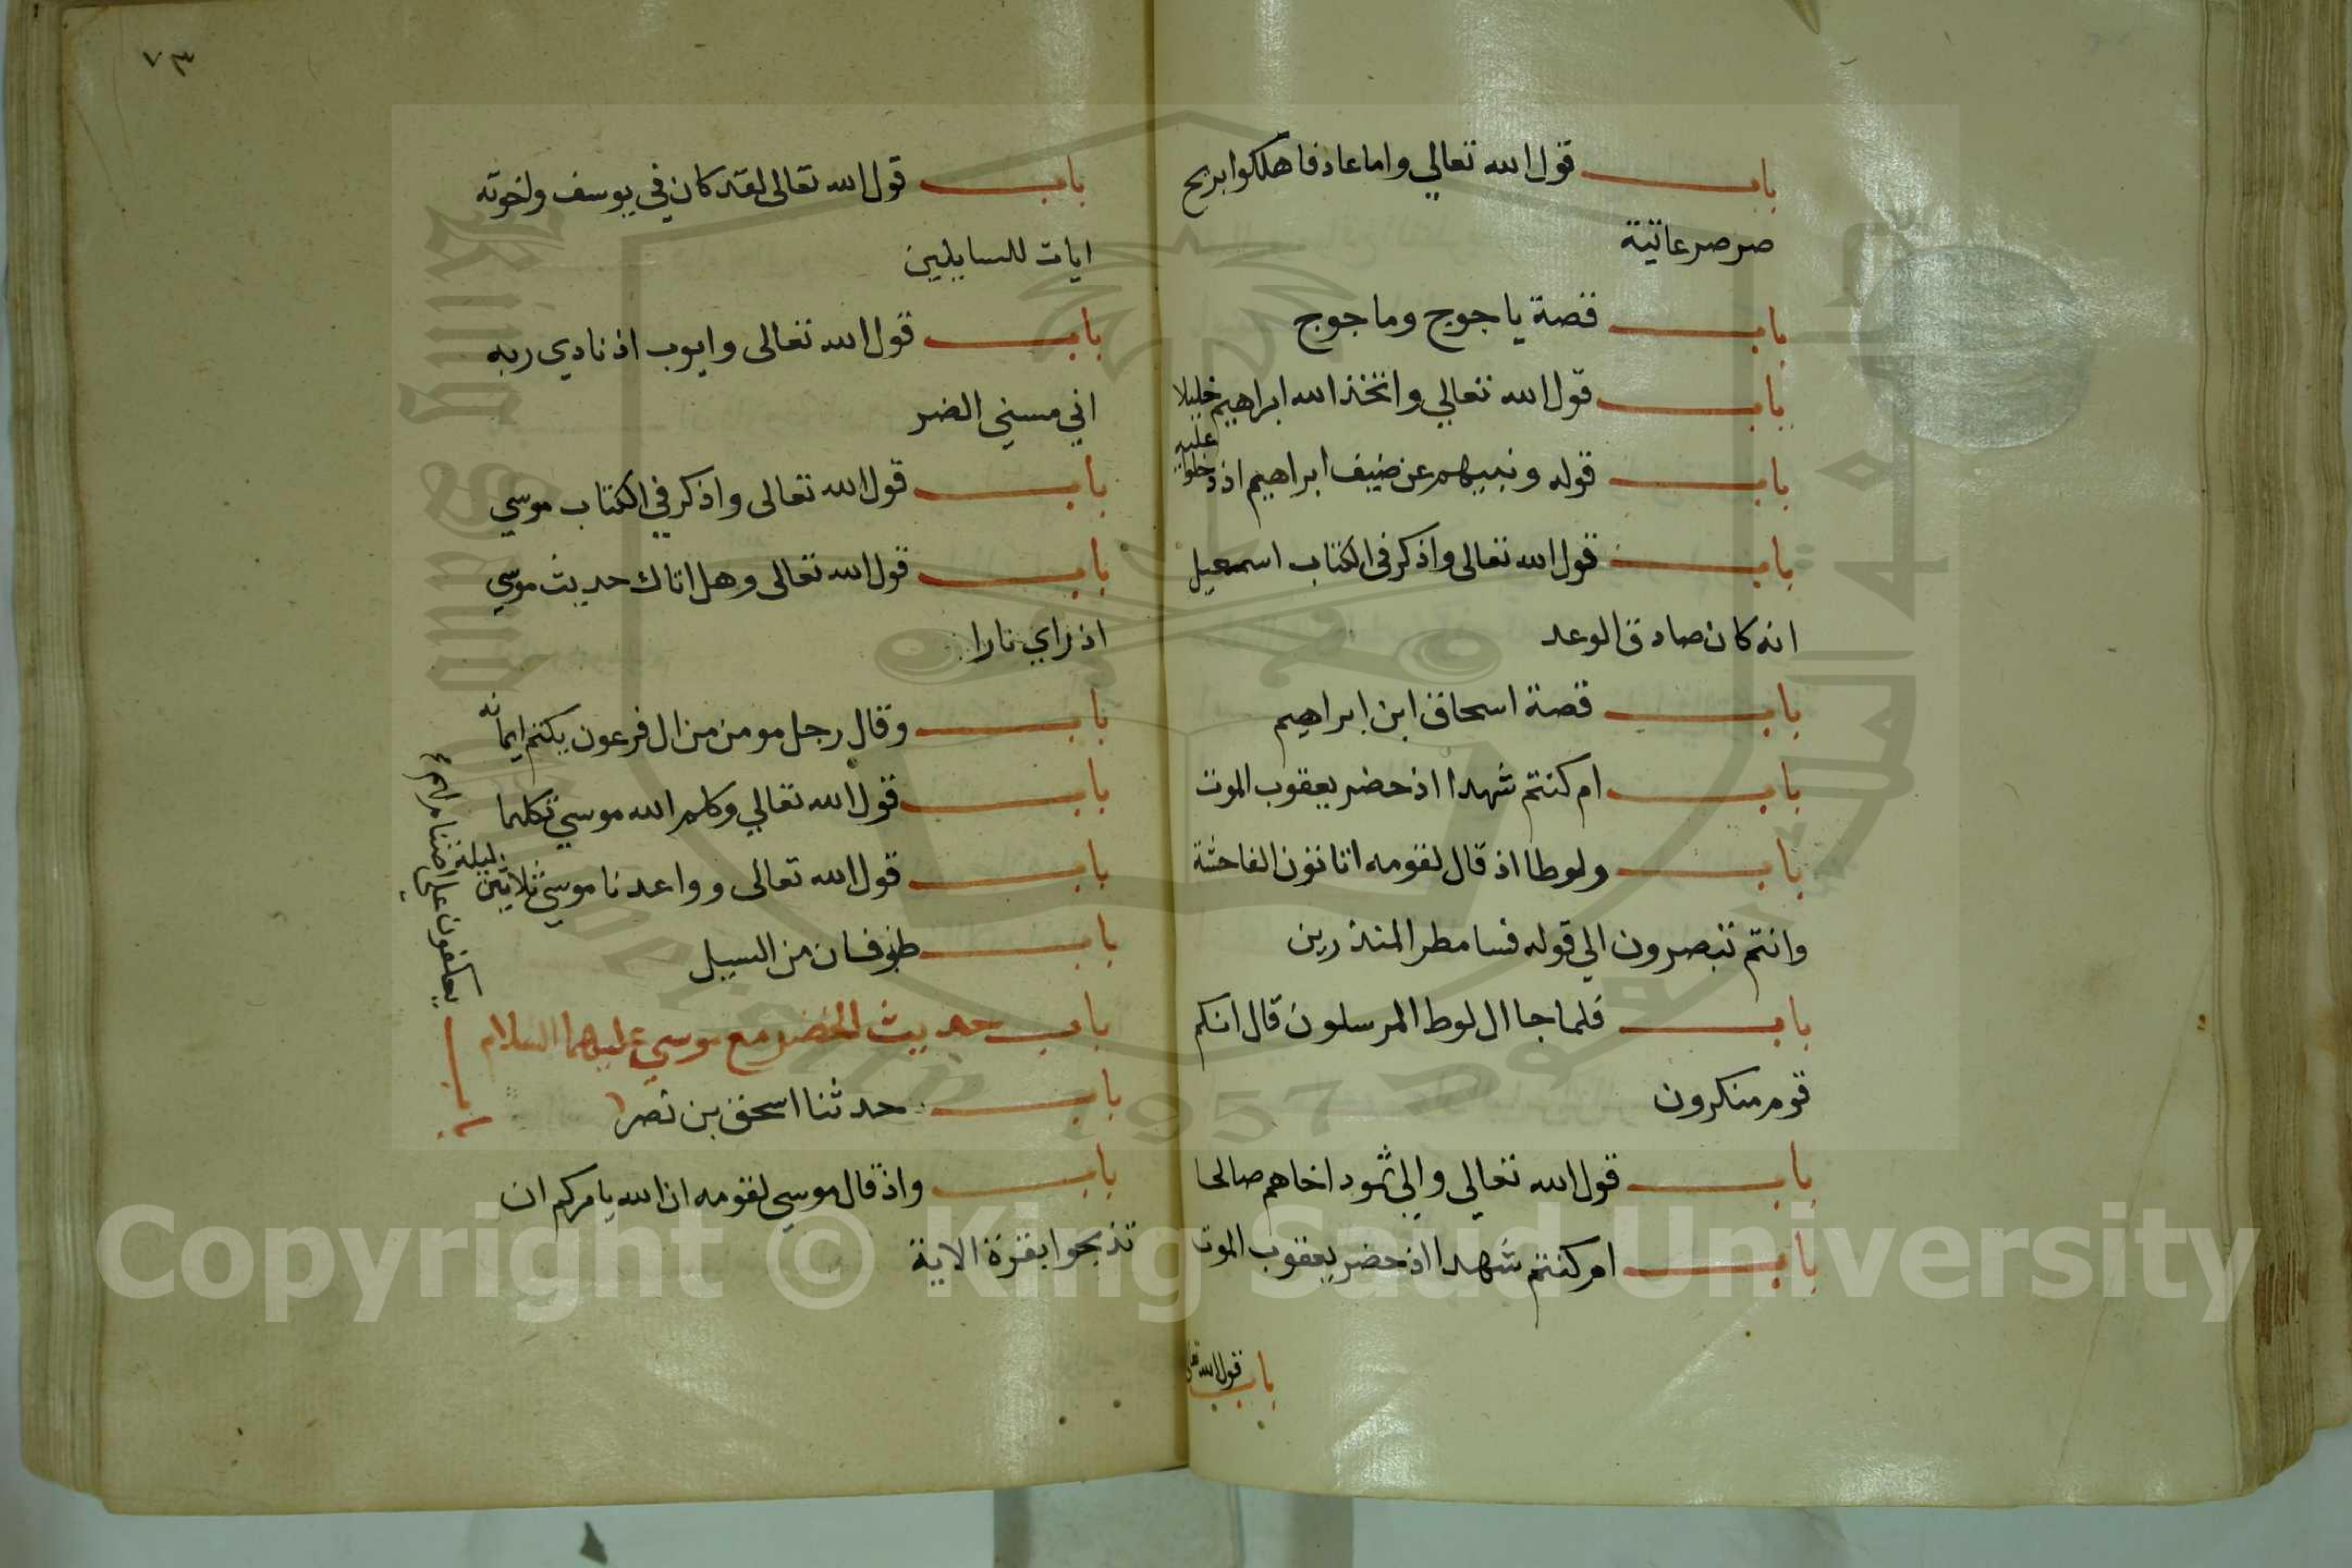 باب قول الله تعالي واما عاد فاهلكوا بريح
صرصر عاتية
باب قصة ياجوج وماجوج
باب قول الله تعالي واتخذ الله ابراهيم خليلا
باب قوله ونبيهم عن ضيف ابراهيم اذ دخلوا عليه
باب قول الله تعالى واذكر في الكتاب اسمعيل
انه كان صادق الوعد
باب قصة اسحاق ابن ابراهيم
باب ام كنتم شهدا اذ حضر يعقوب الموت
باب ولوطا اذ قال لقومه اتاتون الفاحشة
وانتم تبصرون الي قوله فسا مطر المنذرين
باب فلما جا ال لوط المرسلون قال انكم
قوم منكرون
باب قول الله تعالي والي ثمود اخاهم صالحا
باب ام كنتم شهدا اذ حضر يعقوب الموت
باب قول الله تعا
٧٣
باب قول الله تعالى لقد كان في يوسف واخوته
ايات للسايلين
باب قول الله تعالى وايوب اذ نادي ربه
اني مسني الضر
باب قول الله تعالى واذكر في الكتاب موسي
باب قول الله تعالى وهل اتاك حديث موسي
اذ راي نارا
باب وقال رجل مومن من ال فرعون يكتم ايمانه
باب قول الله تعالي وكلم الله موسي تكليما
باب قول الله تعالى وواعدنا موسي ثلاثين ليلة
باب طوفان من السيل
باب حديث الخضر مع موسي عليهما السلام
باب حدثنا اسحق بن نصر
باب يعكفون على اصنام لهم
باب واذ قال موسي لقومه ان الله يامركم ان
تذبحوا بقرة الاية
Copyright © King Saud University
1957